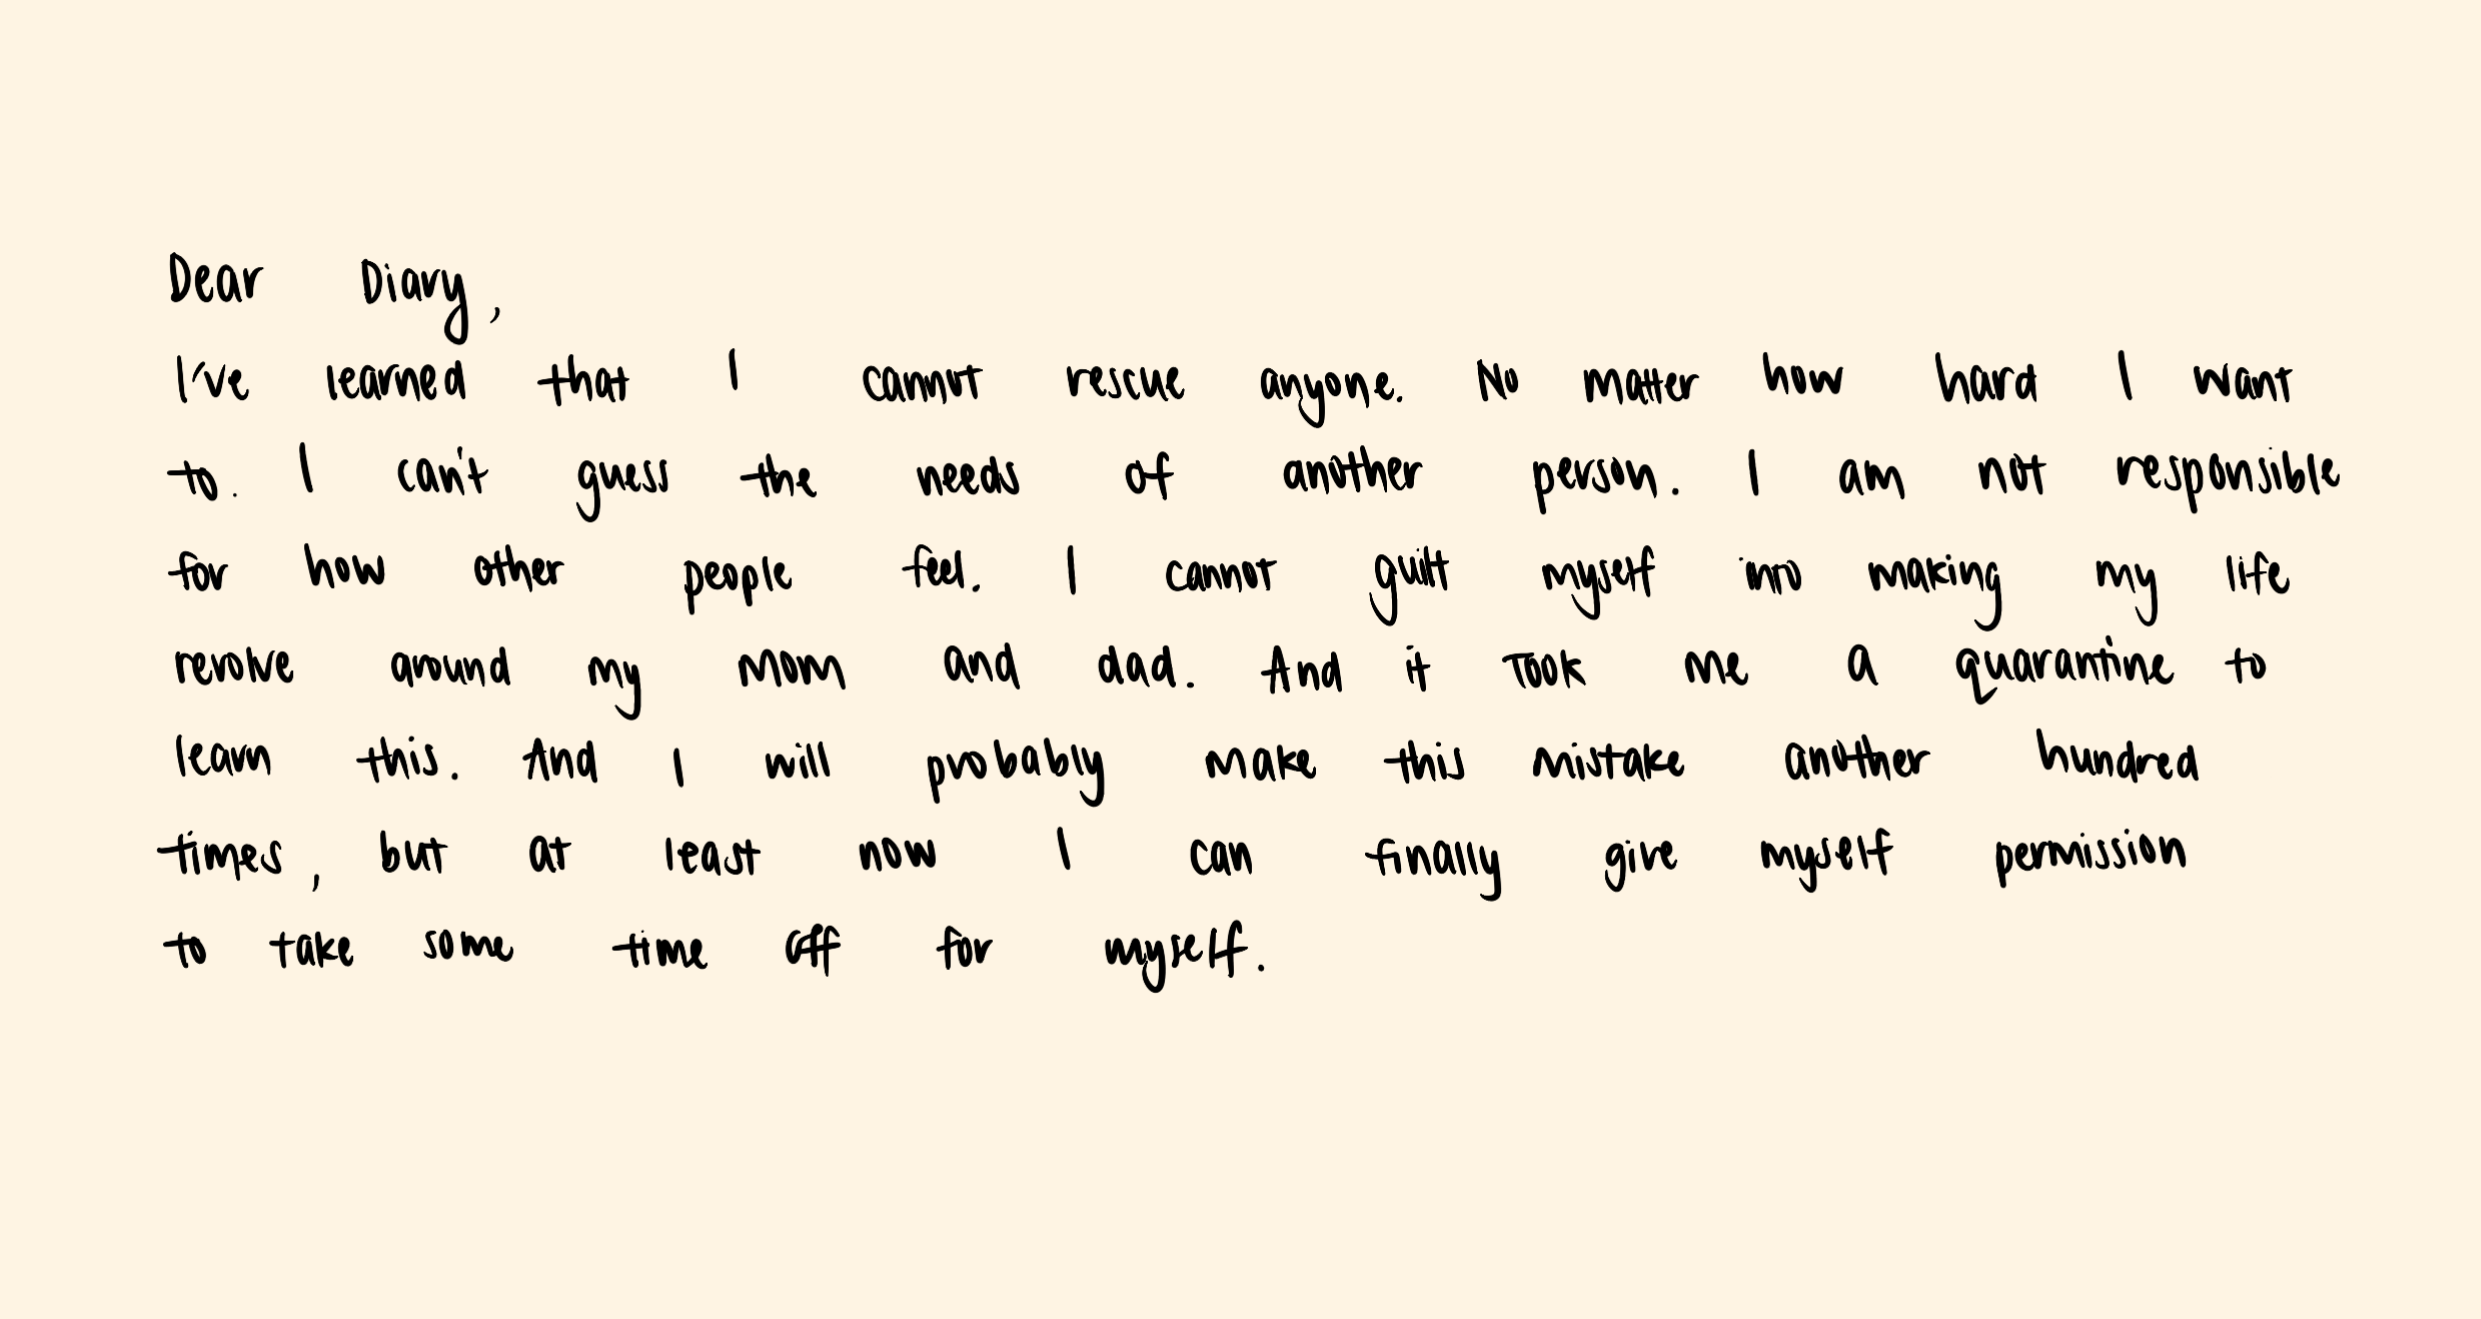 Dear Diary,
I've learned that I cannot rescue anyone. No matter how hard I want
to. I can't guess the needs of another person. I am not responsible
for how other people feel. I cannot guilt myself into making my life
revolve around my mom and dad. And it took me a quarantine to
learn this. And I will probably make this mistake another hundred
times, but at least now I can finally give myself permission
to take some time off for myself.